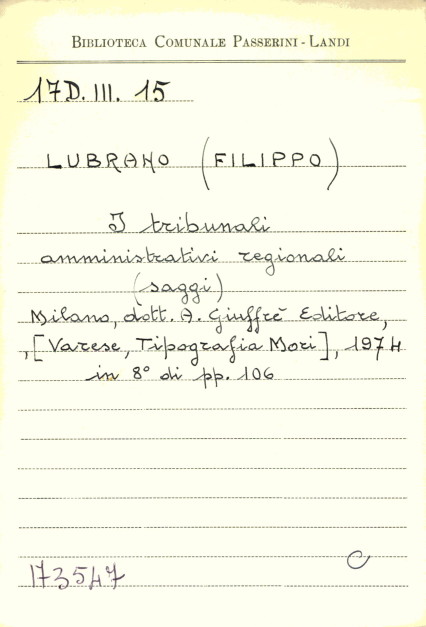 BIBLIOTECA COMUNALE PASSERINI - LANDI
17D. III. 15
LUBRANO (FILIPPO)
I tribunali
amministrativi regionali
(saggi)
Milano, dott. A. Giuffrè Editore,
,[Varese, Tipografia Mori], 1974
in 8° di pp. 106
173547
C